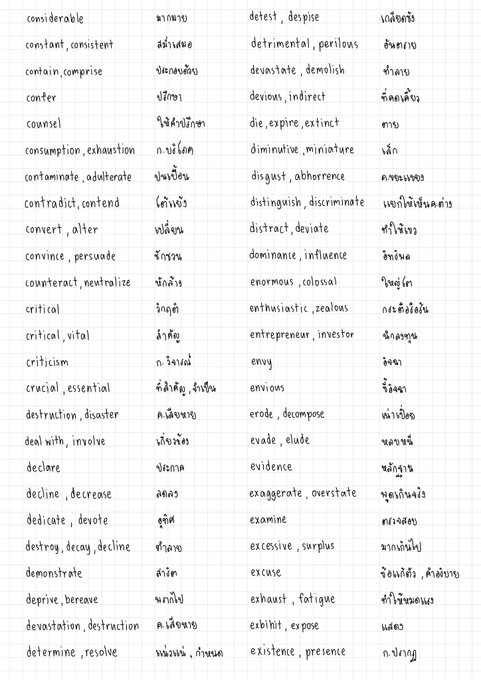 considerable มากมาย
constant, consistent สม่ำเสมอ
contain, comprise ประกอบด้วย
confer ปรึกษา
counsel ให้คำปรึกษา
consumption, exhaustion ก.บริโภค
contaminate, adulterate ปนเปื้อน
contradict, contend โต้แย้ง
convert, alter เปลี่ยน
convince, persuade ชักชวน
counteract, neutralize หักล้าง
critical วิกฤติ
critical, vital สำคัญ
criticism ก.วิจารณ์
crucial, essential ที่สำคัญ, จำเป็น
destruction, disaster ค.เสียหาย
deal with, involve เกี่ยวข้อง
declare ประกาศ
decline, decrease ลดลง
dedicate, devote อุทิศ
destroy, decay, decline ทำลาย
demonstrate สาธิต
deprive, bereave พรากไป
devastation, destruction ค.เสียหาย
determine, resolve แน่วแน่, กำหนด
detest, despise เกลียดชัง
detrimental, perilous อันตราย
devastate, demolish ทำลาย
devious, indirect ที่คดเคี้ยว
die, expire, extinct ตาย
diminutive, miniature เล็ก
disgust, abhorrence ค.ขยะแขยง
distinguish, discriminate แยกให้เห็นค.ต่าง
distract, deviate ทำให้เขว
dominance, influence อิทธิพล
enormous, colossal ใหญ่โต
enthusiastic, zealous กระตือรือร้น
entrepreneur, investor นักลงทุน
envy อิจฉา
envious ขี้อิจฉา
erode, decompose เน่าเปื่อย
evade, elude หลบหนี
evidence หลักฐาน
exaggerate, overstate พูดเกินจริง
examine ตรวจสอบ
excessive, surplus มากเกินไป
excuse ข้อแก้ตัว, คำอธิบาย
exhaust, fatigue ทำให้หมดแรง
exbihit, expose แสดง
existence, presence ก.ปรากฏ